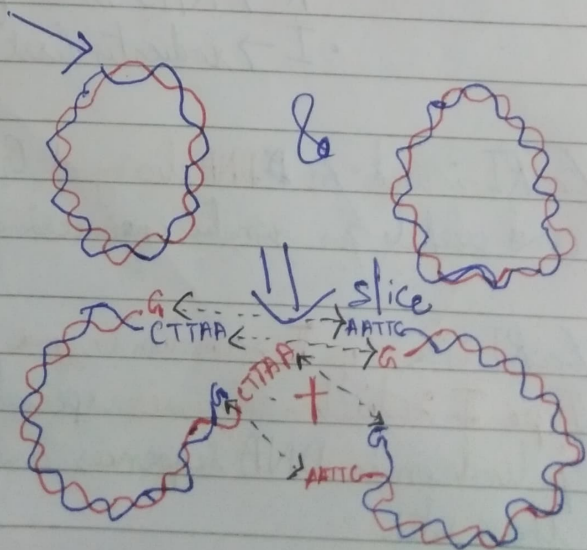 &
slice
G
CTTAA
AATTG
G
G
CTTAA
+
G
AATTG